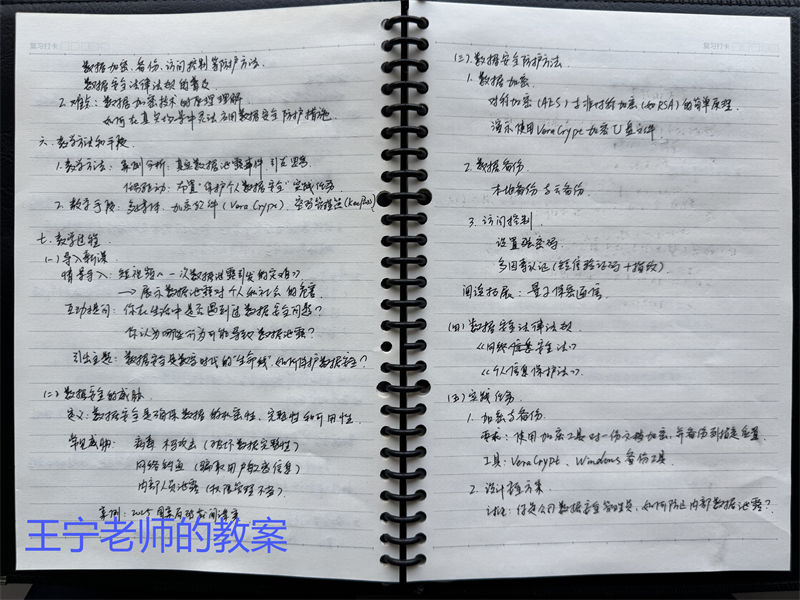 数据加密、备份、访问控制等防护方法.
数据安全法律法规的普及
2. 难点: 数据加密技术的原理理解.
如何在真实场景中灵活应用数据安全防护措施.
六、教学方法和手段
1. 教学方法: 案例分析: 真实数据泄露事件, 引互思考
任务驱动: 布置“保护个人数据安全”实践任务.
2. 教学手段: 多媒体、加密软件 (VeraCrypt)、密码管理器 (KeePass)
七、教学过程
(一) 导入新课
情景导入: 短视频《一次数据泄露引发的灾难》
→ 展示数据泄露对个人和社会的危害.
互动提问: 你在生活中是否遇到过数据安全问题?
你认为哪些行为可能导致数据泄露?
引出主题: 数据安全是数字时代的“生命线”, 如何保护数据安全?
(二) 数据安全的威胁
定义: 数据安全是确保数据的机密性, 完整性和可用性.
常见威胁: 病毒木马攻击 (破坏数据完整性)
网络钓鱼 (骗取用户敏感信息)
内部人员泄露 (权限管理不当)
案例: 2025 国家反诈
王宁老师的教案
(三) 数据安全防护方法
1. 数据加密.
对称加密 (AES) 与非对称加密 (如 RSA) 的简单原理.
演示使用 VeraCrypt 加密 U 盘文件
2. 数据备份
本地备份与云备份.
3. 访问控制
设置强密码.
多因素认证 (短信验证码 + 指纹)
前沿拓展: 量子保密通信.
(四) 数据安全法律法规
《网络信息安全法》
《个人信息保护法》.
(五) 实践任务.
1. 加密与备份.
要求: 使用加密工具对一份文档加密, 并备份到指定位置.
工具: VeraCrypt、Windows 备份工具
2. 设计安全方案.
讨论: 你是公司数据安全管理员, 如何防止内部数据泄露?